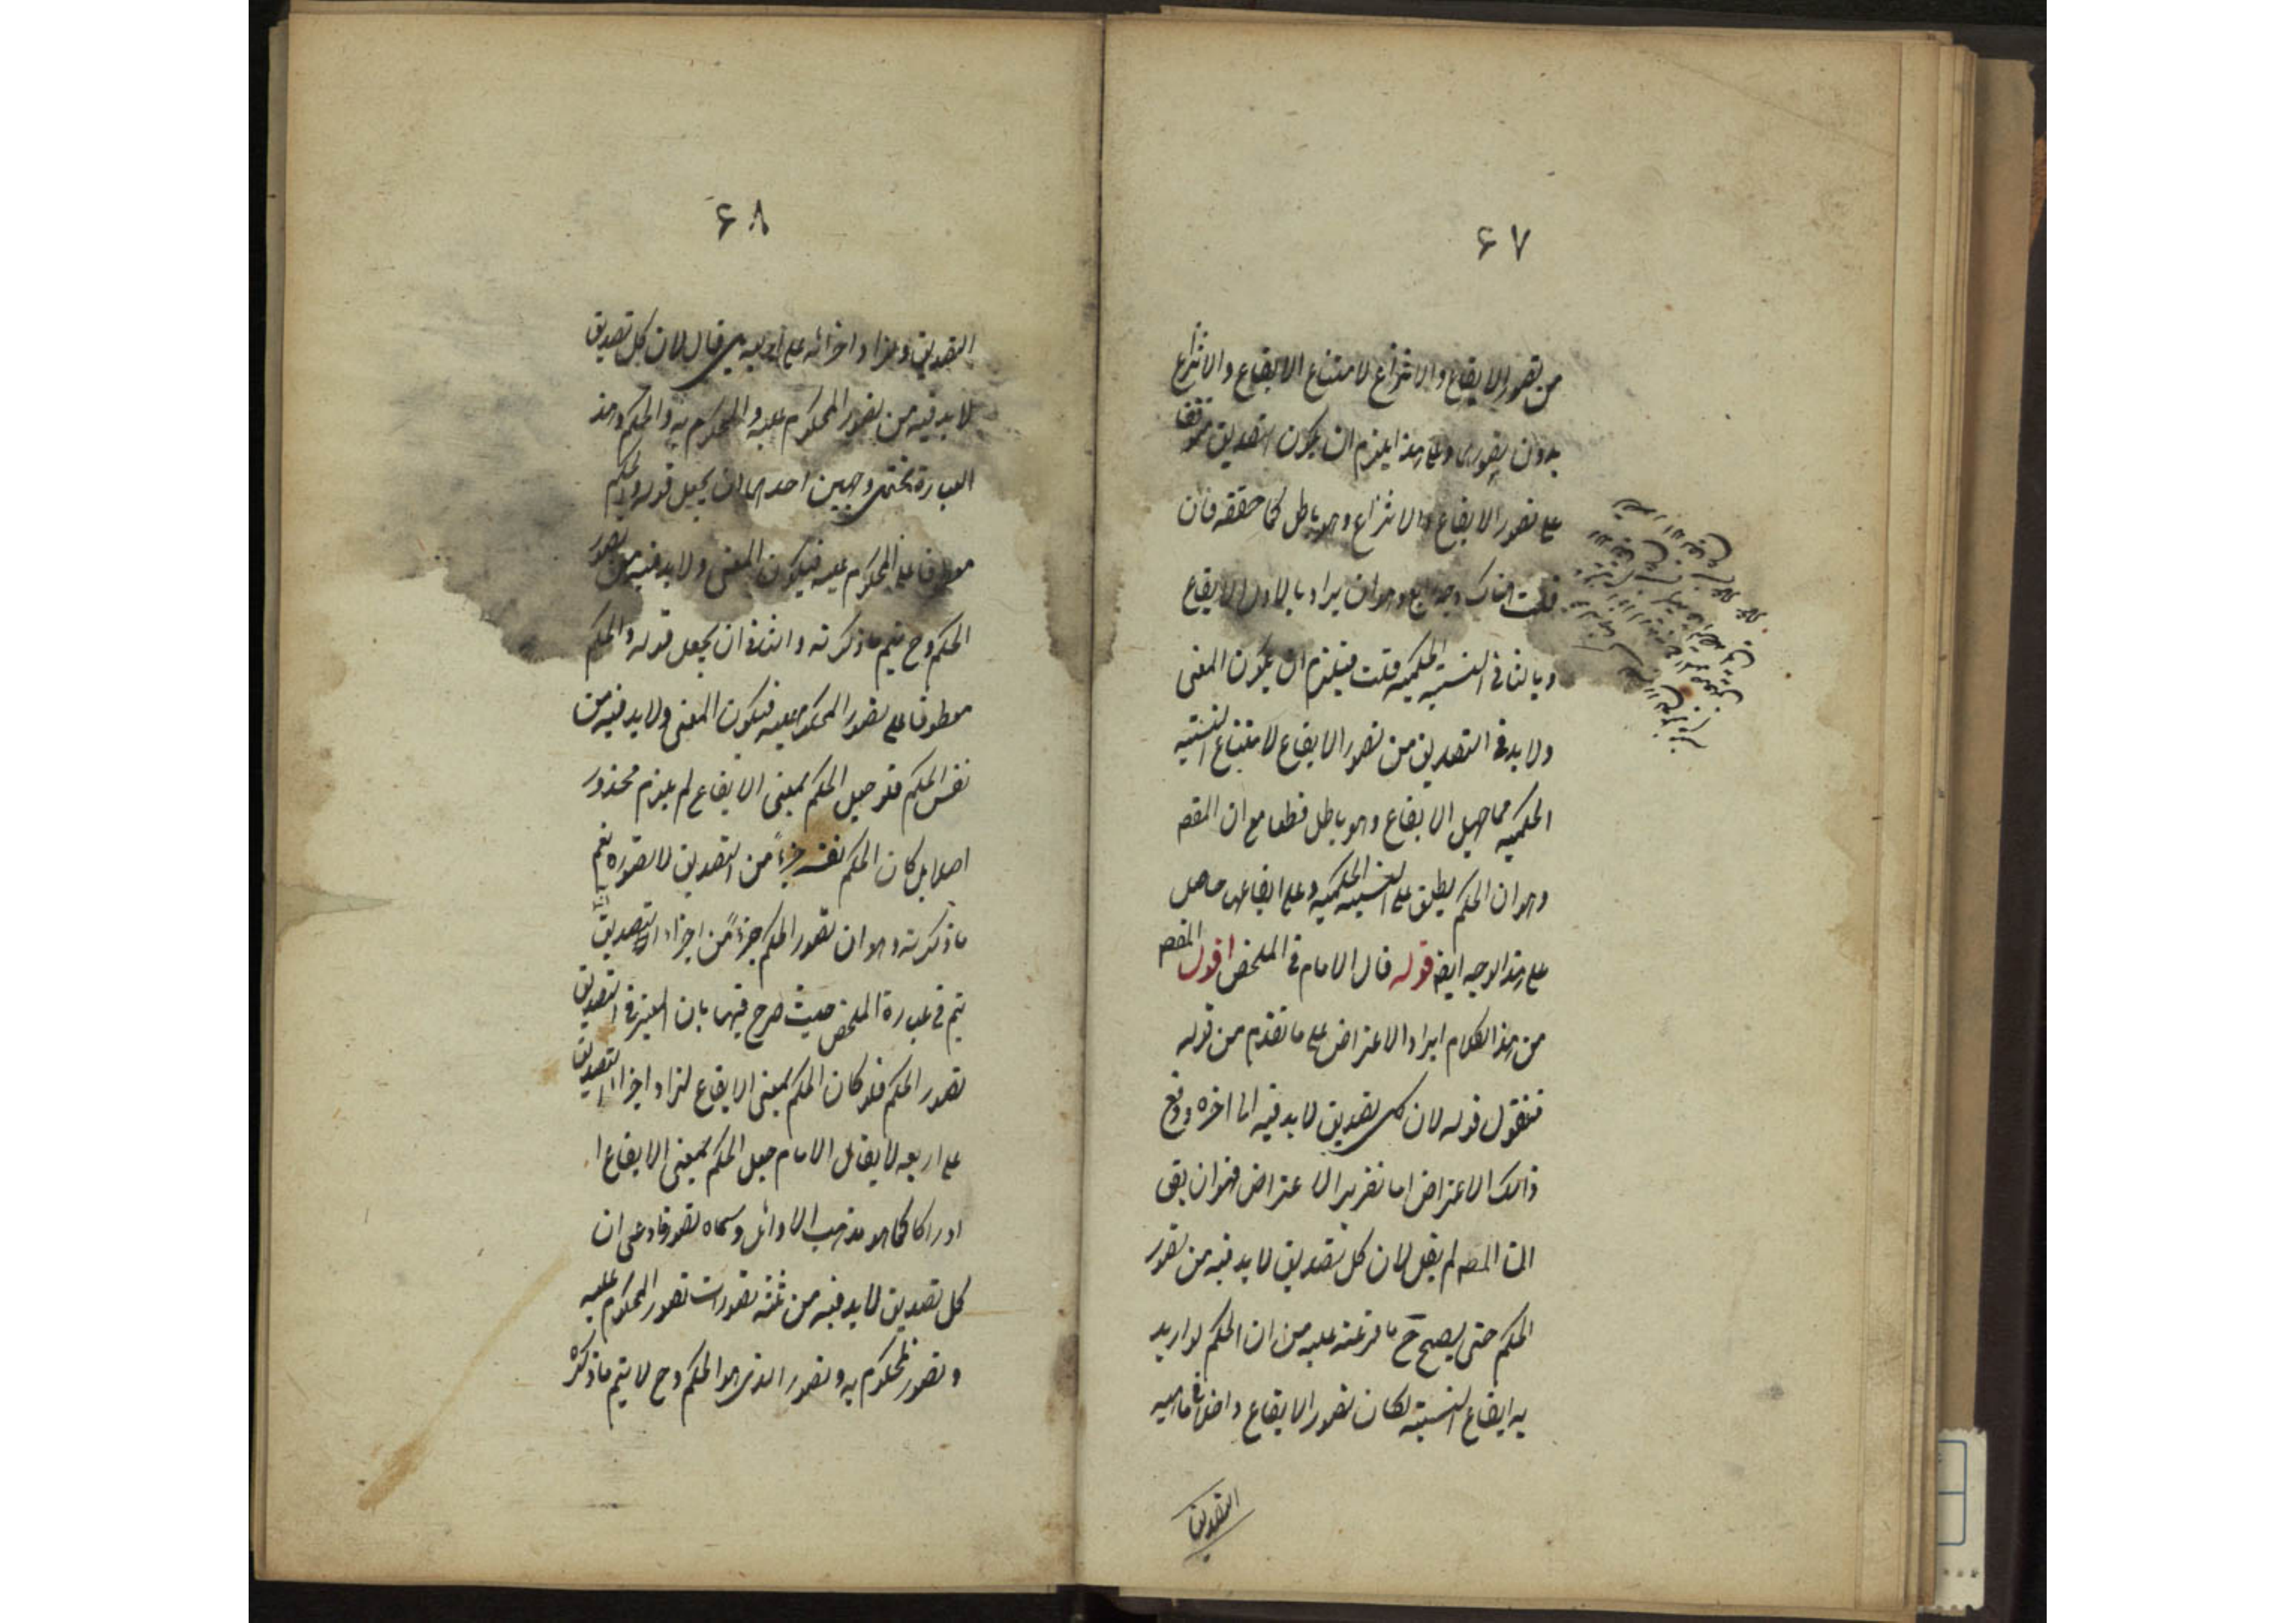 ۶۷
من تصور الايقاع والانتزاع لامتناع الايقاع والانتزاع
بدون تصوره وعلى هذا يلزم ان يكون التصديق موقوفا
على تصور الايقاع والانتزاع وهو باطل كما حققه فان
قلت هناك وجه رابع وهو ان يراد بالاول الايقاع
وبالثانى النسبة الحكمية قلت فيلزم ان يكون المعنى
ولا بد فى التصديق من تصور الايقاع لامتناع النسبة
الحكمية مما جهل الايقاع وهو باطل قطعا مع ان المقصد
وهو ان الحكم يطلق على النسبة الحكمية وعلى ايقاعها حاصل
على هذا الوجه ايضا قوله قال الامام فى الملخص اقول المقصد
من هذا الكلام ايراد الاعتراض على ما تقدم من قوله
فنقول قوله لان كل تصديق لا بد فيه الى اخره ودفع
ذلك الاعتراض اما تقرير الاعتراض فهو ان يقى
ان المصـ لم يقل لان كل تصديق لا بد فيه من تصور
الحكم حتى يصح ح ما فرعته عليه من ان الحكم لو اريد
به ايقاع النسبة لكان تصور الايقاع داخلا فى ماهية
التصديق
۶۸
التصديق وزاد اجزائه على اربعة بل قال لان كل تصديق
لا بد فيه من تصور المحكوم عليه والمحكوم به والحكم وهذه
العبارة تحتمل وجهين احدهما ان يجعل قوله والحكم
معطوفا على المحكوم عليه فيكون المعنى ولا بد فيه من تصور
الحكم وح يتم ما ذكرته والثانى ان يجعل قوله والحكم
معطوفا على تصور المحكوم عليه فيكون المعنى ولا بد فيه من
نفس الحكم فلو جعل الحكم بمعنى الايقاع لم يلزم محذور
اصلا بل كان الحكم نفسه جزءً من التصديق لا تصوره نعم
ما ذكرته وهو ان تصور الحكم جزءً من اجزاء التصديق
يتم فى عبارة الملخص حيث صرح فيها بان المعتبر فى التصديق
تصور الحكم فلو كان الحكم بمعنى الايقاع لزاد اجزاء التصديق
على اربعة لا يقال الامام جعل الحكم بمعنى الايقاع ا
ادراكا كما هو مذهب الاوائل وسماه تصورا فادعى ان
كل تصديق لا بد فيه من ثلثة تصورات تصور المحكوم عليه
وتصور المحكوم به وتصور الذى هو الحكم وح لا يتم ما ذكره